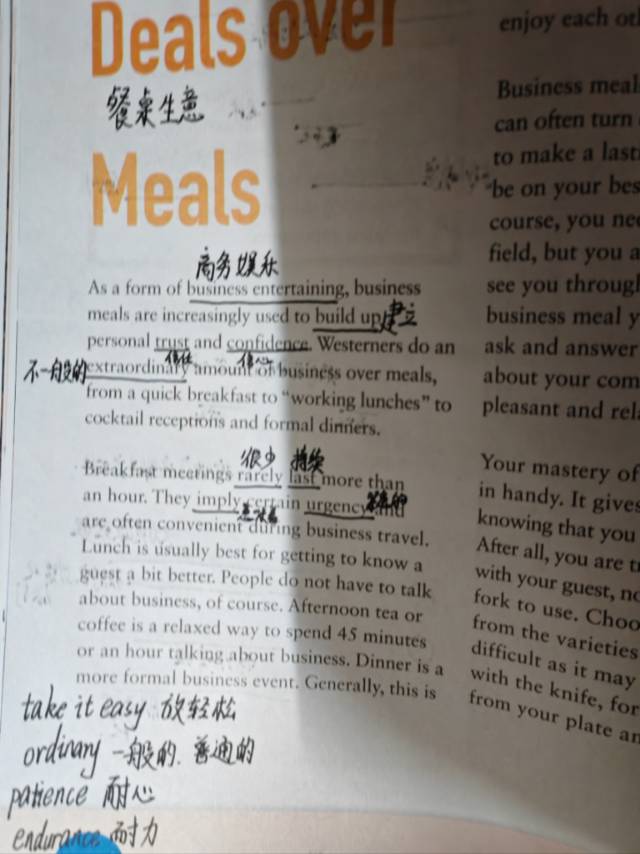 Deals over
餐桌生意
Meals
商务娱乐
As a form of business entertaining, business
meals are increasingly used to build up 建立
personal trust and confidence. Westerners do an
信任 信心
不一般的 extraordinary amount of business over meals,
from a quick breakfast to “working lunches” to
cocktail receptions and formal dinners.
很少 持续
Breakfast meetings rarely last more than
an hour. They imply certain urgency and
are often convenient during business travel.
Lunch is usually best for getting to know a
guest a bit better. People do not have to talk
about business, of course. Afternoon tea or
coffee is a relaxed way to spend 45 minutes
or an hour talking about business. Dinner is a
more formal business event. Generally, this is
take it easy 放轻松
ordinary 一般的. 普通的
patience 耐心
endurance 耐力
enjoy each
Business
can often turn
to make a
be on your
course, you
field, but you
see you
business meal
ask and answer
about your
pleasant and
Your mastery of
in handy. It gives
knowing that you
After all, you are
with your guest,
fork to use.
from the varieties
difficult as it may
with the knife,
from your plate